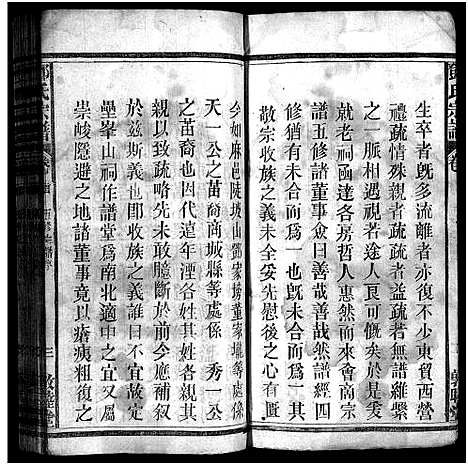 鄧氏宗譜 卷
生卒者旣多流離者亦復不少東貿西營
禮疏情殊親者疏疏者益疏者雖繫
之一脈相遇視者途人良可慨矣於是爰
就老祠國達各房哲人惠然而來會商宗
譜以修諸董事僉曰善哉善哉然譜經四
修猶有未合而爲一也旣未合而爲一其
敬宗收族之義未全妥先慰後之心有慝
今如麻邑陡坡山鄧家塝董家壠等處係
天一公之苗裔商城縣等處係 秀一公
之苗裔因代遠年湮各爲其姓各親其
親以致疏略先未敢臆斷於前今應補敘
於茲斯義也卽收族之義誰曰不宜故于
壘峯山祠作譜堂爲南北適中之宜又屬
崇峻隱避之地諸董事竟以瘡痍粗復之
三 敦睦堂